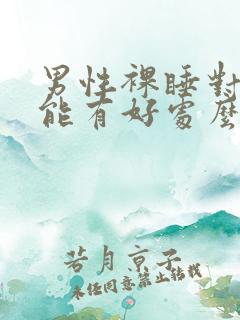 男性裸睡對
能有好處麼
若月京子
未任同意禁止轉載